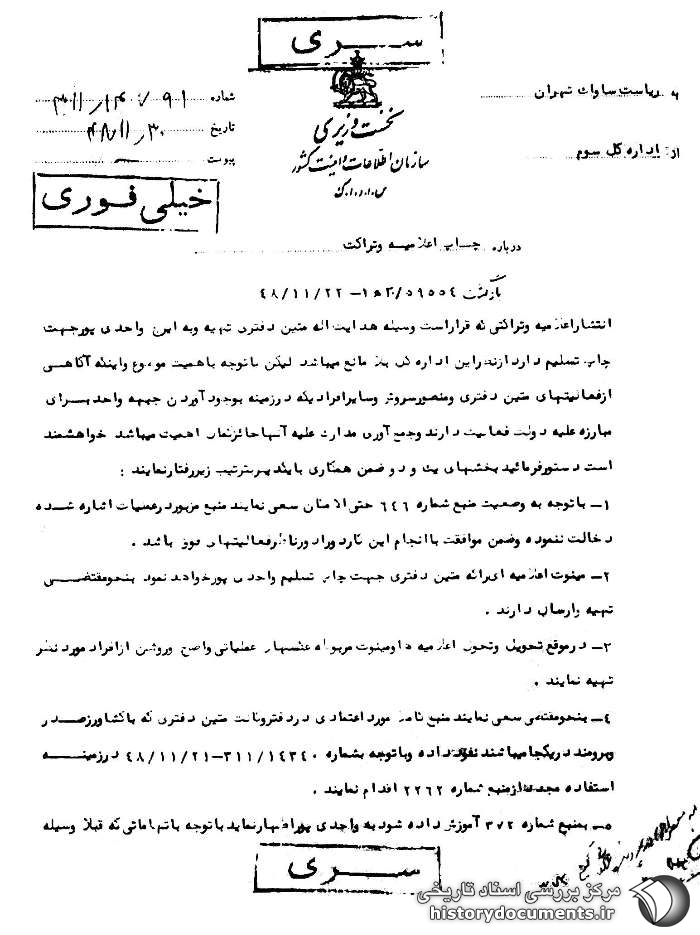 سری
به ریاست ساواک تهران
از: اداره کل سوم
نخست وزیری
سازمان اطلاعات و امنیت کشور
س.ا.و.ا.ک
شماره ۳۱۱/۱۴۰۷۹۱
تاریخ ۴۸/۱۱/۳۰
پیوست
خیلی فوری
درباره چاپ اعلامیه و تراکت
بازگشت ۵۹۵۵۴/۲۰ ه ۱ـ ۴۸/۱۱/۲۲
انتشار اعلامیه و تراکتی که قرار است وسیله هدایت اله متین دفتری تهیه و به ایرج واحدی پور جهت
چاپ تسلیم دارد از نظر این اداره کل بلا مانع میباشد لیکن با توجه باهمیت موضوع و اینکه آگاهی
از فعالیتهای متین دفتری و منصور سروش و سایر افرادیکه در زمینه بوجود آوردن جبهه واحد برای
مبارزه علیه دولت فعالیت دارند و جمع آوری مدارک علیه آنها حائز کمال اهمیت میباشد خواهشمند
است دستور فرمائید بخشهای یک و دو ضمن همکاری با یکدیگر بترتیب زیر رفتار نمایند :
۱ـ با توجه به وضعیت منبع شماره ۶۴۶ حتی الامکان سعی نمایند منبع مزبور در عملیات اشاره شده
دخالت ننموده و ضمن موافقت با انجام این کار دورادور ناظر فعالیتهای فوق باشد .
۲ـ مینوت اعلامیه ایراکه متین دفتری جهت چاپ تسلیم واحدی پور خواهد نمود بنحو مقتضی
تهیه و ارسال دارند .
۳ـ در موقع تحویل و تحول اعلامیه ها و مینوت مربوطه عکسهای عملیاتی واضح و روشن از افراد مورد نظر
تهیه نمایند .
۴ـ بنحو مقتضی سعی نمایند منبع کاملا مورد اعتمادی در دفتر وکالت متین دفتری که با کشاورز صدر
وبرومند در یکجا میباشند نفوذ داده و با توجه بشماره ۳۱۱/۱۴۳۴۰ـ۴۸/۱۱/۲۱ در زمینه
استفاده مجدد از منبع شماره ۲۲۶۲ اقدام نمایند .
۵ـ بمنبع شماره ۳۷۲ آموزش داده شود به واحدی پور اظهار نماید با توجه باتهاماتی که قبلا وسیله
سری
مرکز بررسی اسناد تاریخی
historydocuments.ir